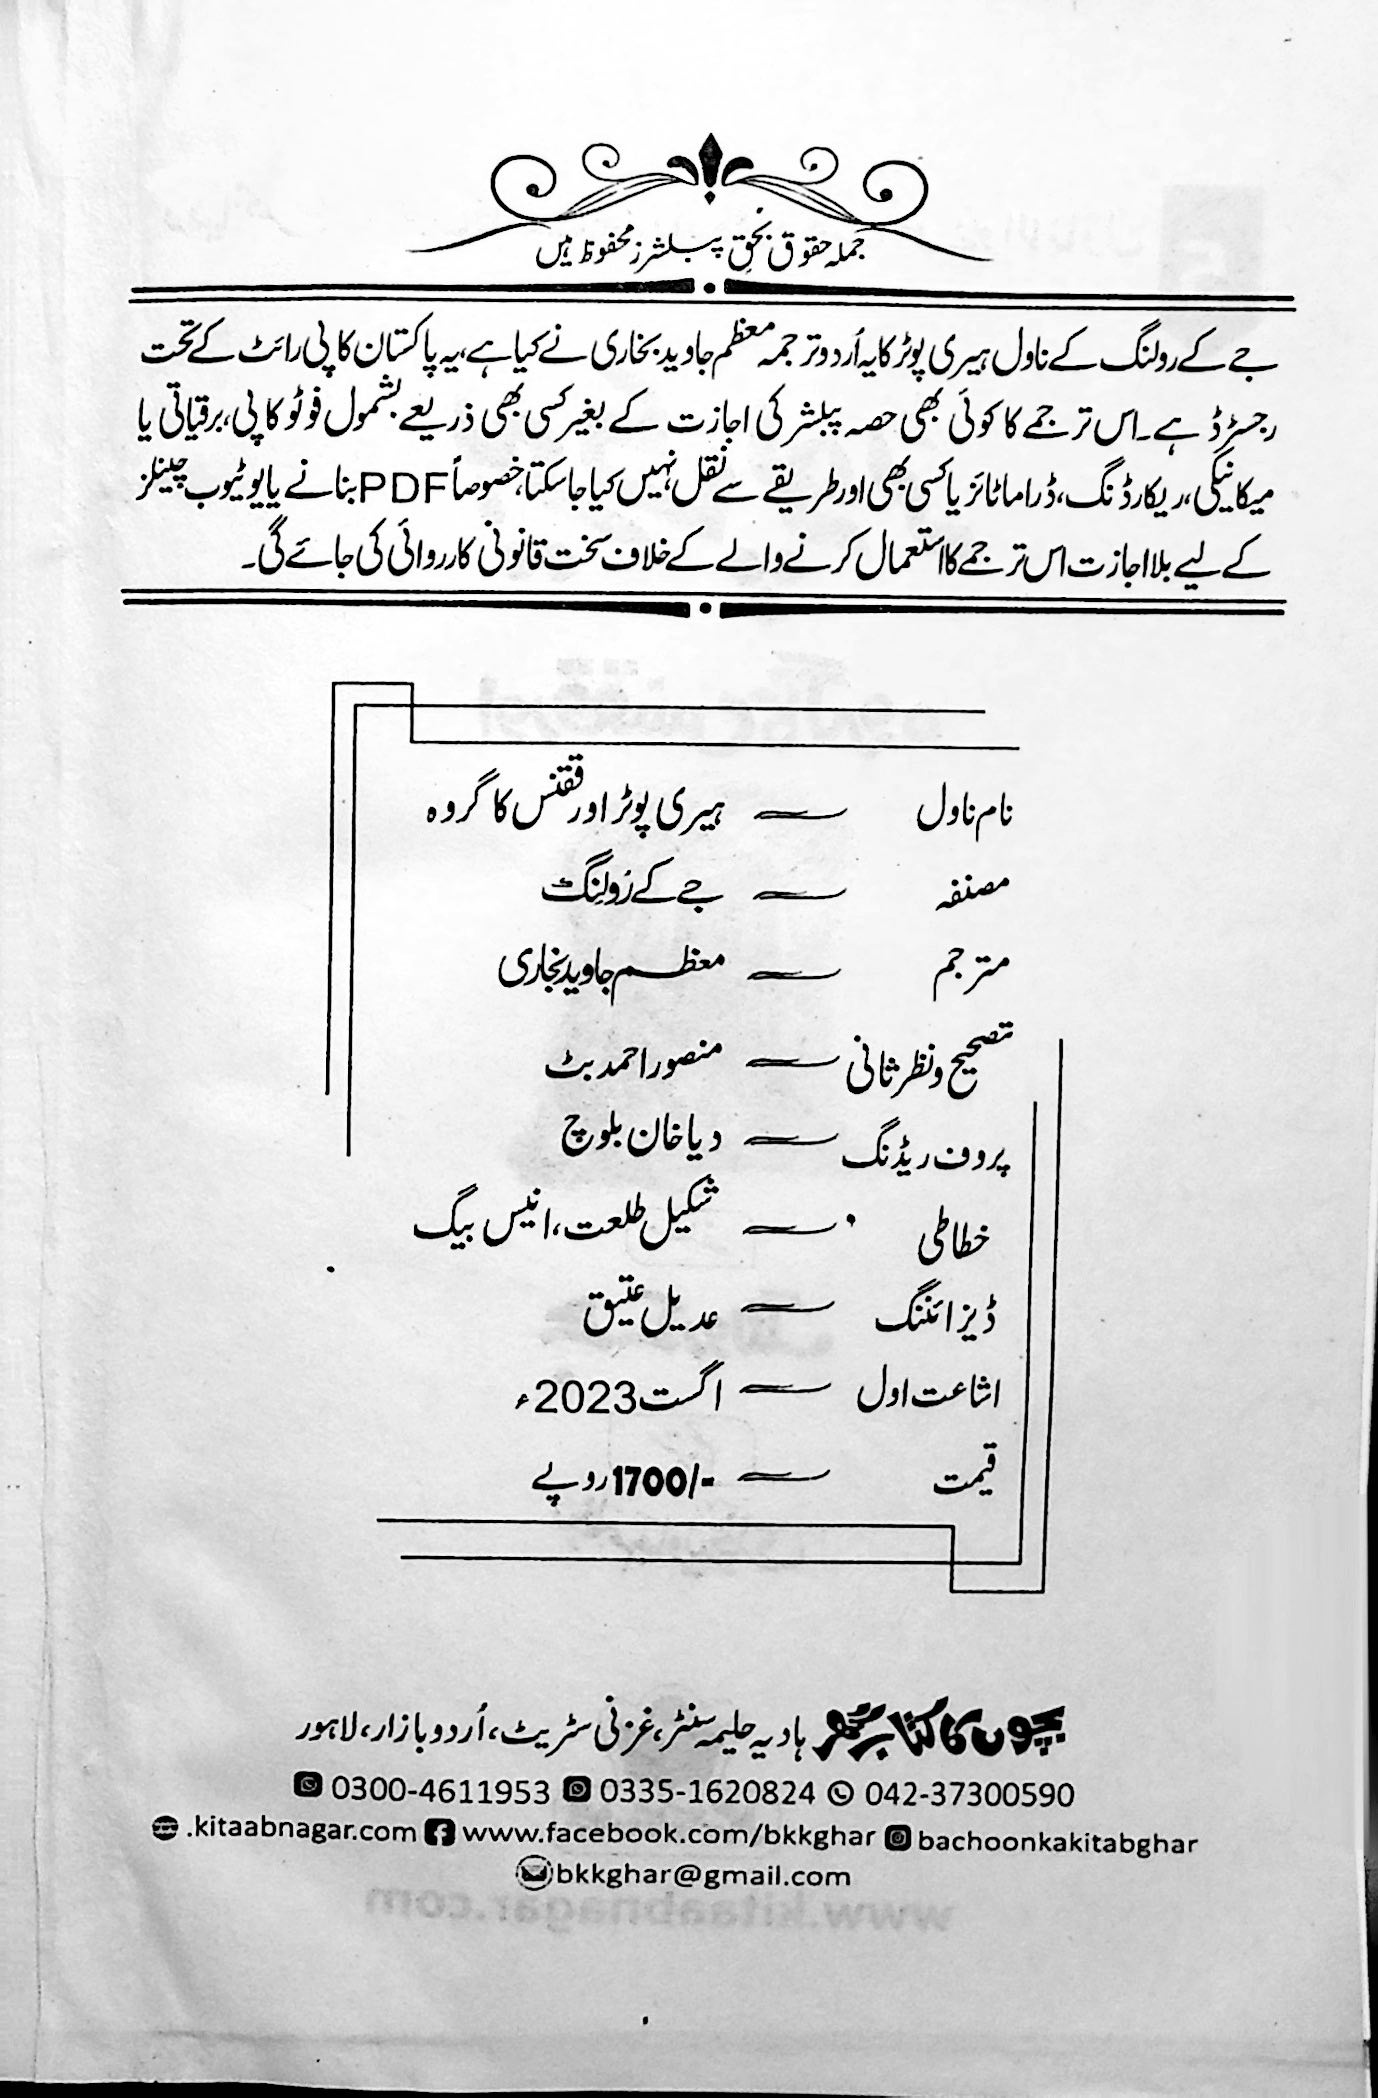 جملہ حقوق بحق پبلشرز محفوظ ہیں
جے کے رولنگ کے ناول ہیری پوٹر کا یہ اُردو ترجمہ معظم جاوید بخاری نے کیا ہے، یہ پاکستان کاپی رائٹ کے تحت
رجسٹرڈ ہے۔ اس ترجمے کا کوئی بھی حصہ پبلشر کی اجازت کے بغیر کسی بھی ذریعے بشمول فوٹو کاپی، برقیاتی یا
میکانیکی، ریکارڈنگ، ڈراماٹائز یا کسی بھی اور طریقے سے نقل نہیں کیا جاسکتا، خصوصاً PDF بنانے یا یوٹیوب چینلز
کے لیے بلا اجازت اس ترجمے کا استعمال کرنے والے کے خلاف سخت قانونی کارروائی کی جائے گی۔
نام ناول ہیری پوٹر اور ققنس کا گروہ
مصنفہ جے کے رَولِنگ
مترجم معظم جاوید بخاری
تصحیح و نظر ثانی منصور احمد بٹ
پروف ریڈنگ دیا خان بلوچ
خطاطی شکیل طلعت، انیس بیگ
ڈیزائننگ عدیل عتیق
اشاعت اول اگست 2023ء
قیمت 1700/- روپے
بچوں کا کتاب گھر ہادیہ حلیمہ سنٹر، غزنی سٹریٹ، اُردو بازار، لاہور
0300-4611953 0335-1620824 042-37300590
.kitaabnagar.com www.facebook.com/bkkghar bachoonkakitabghar
bkkghar@gmail.com
www.kitaabnagar.com